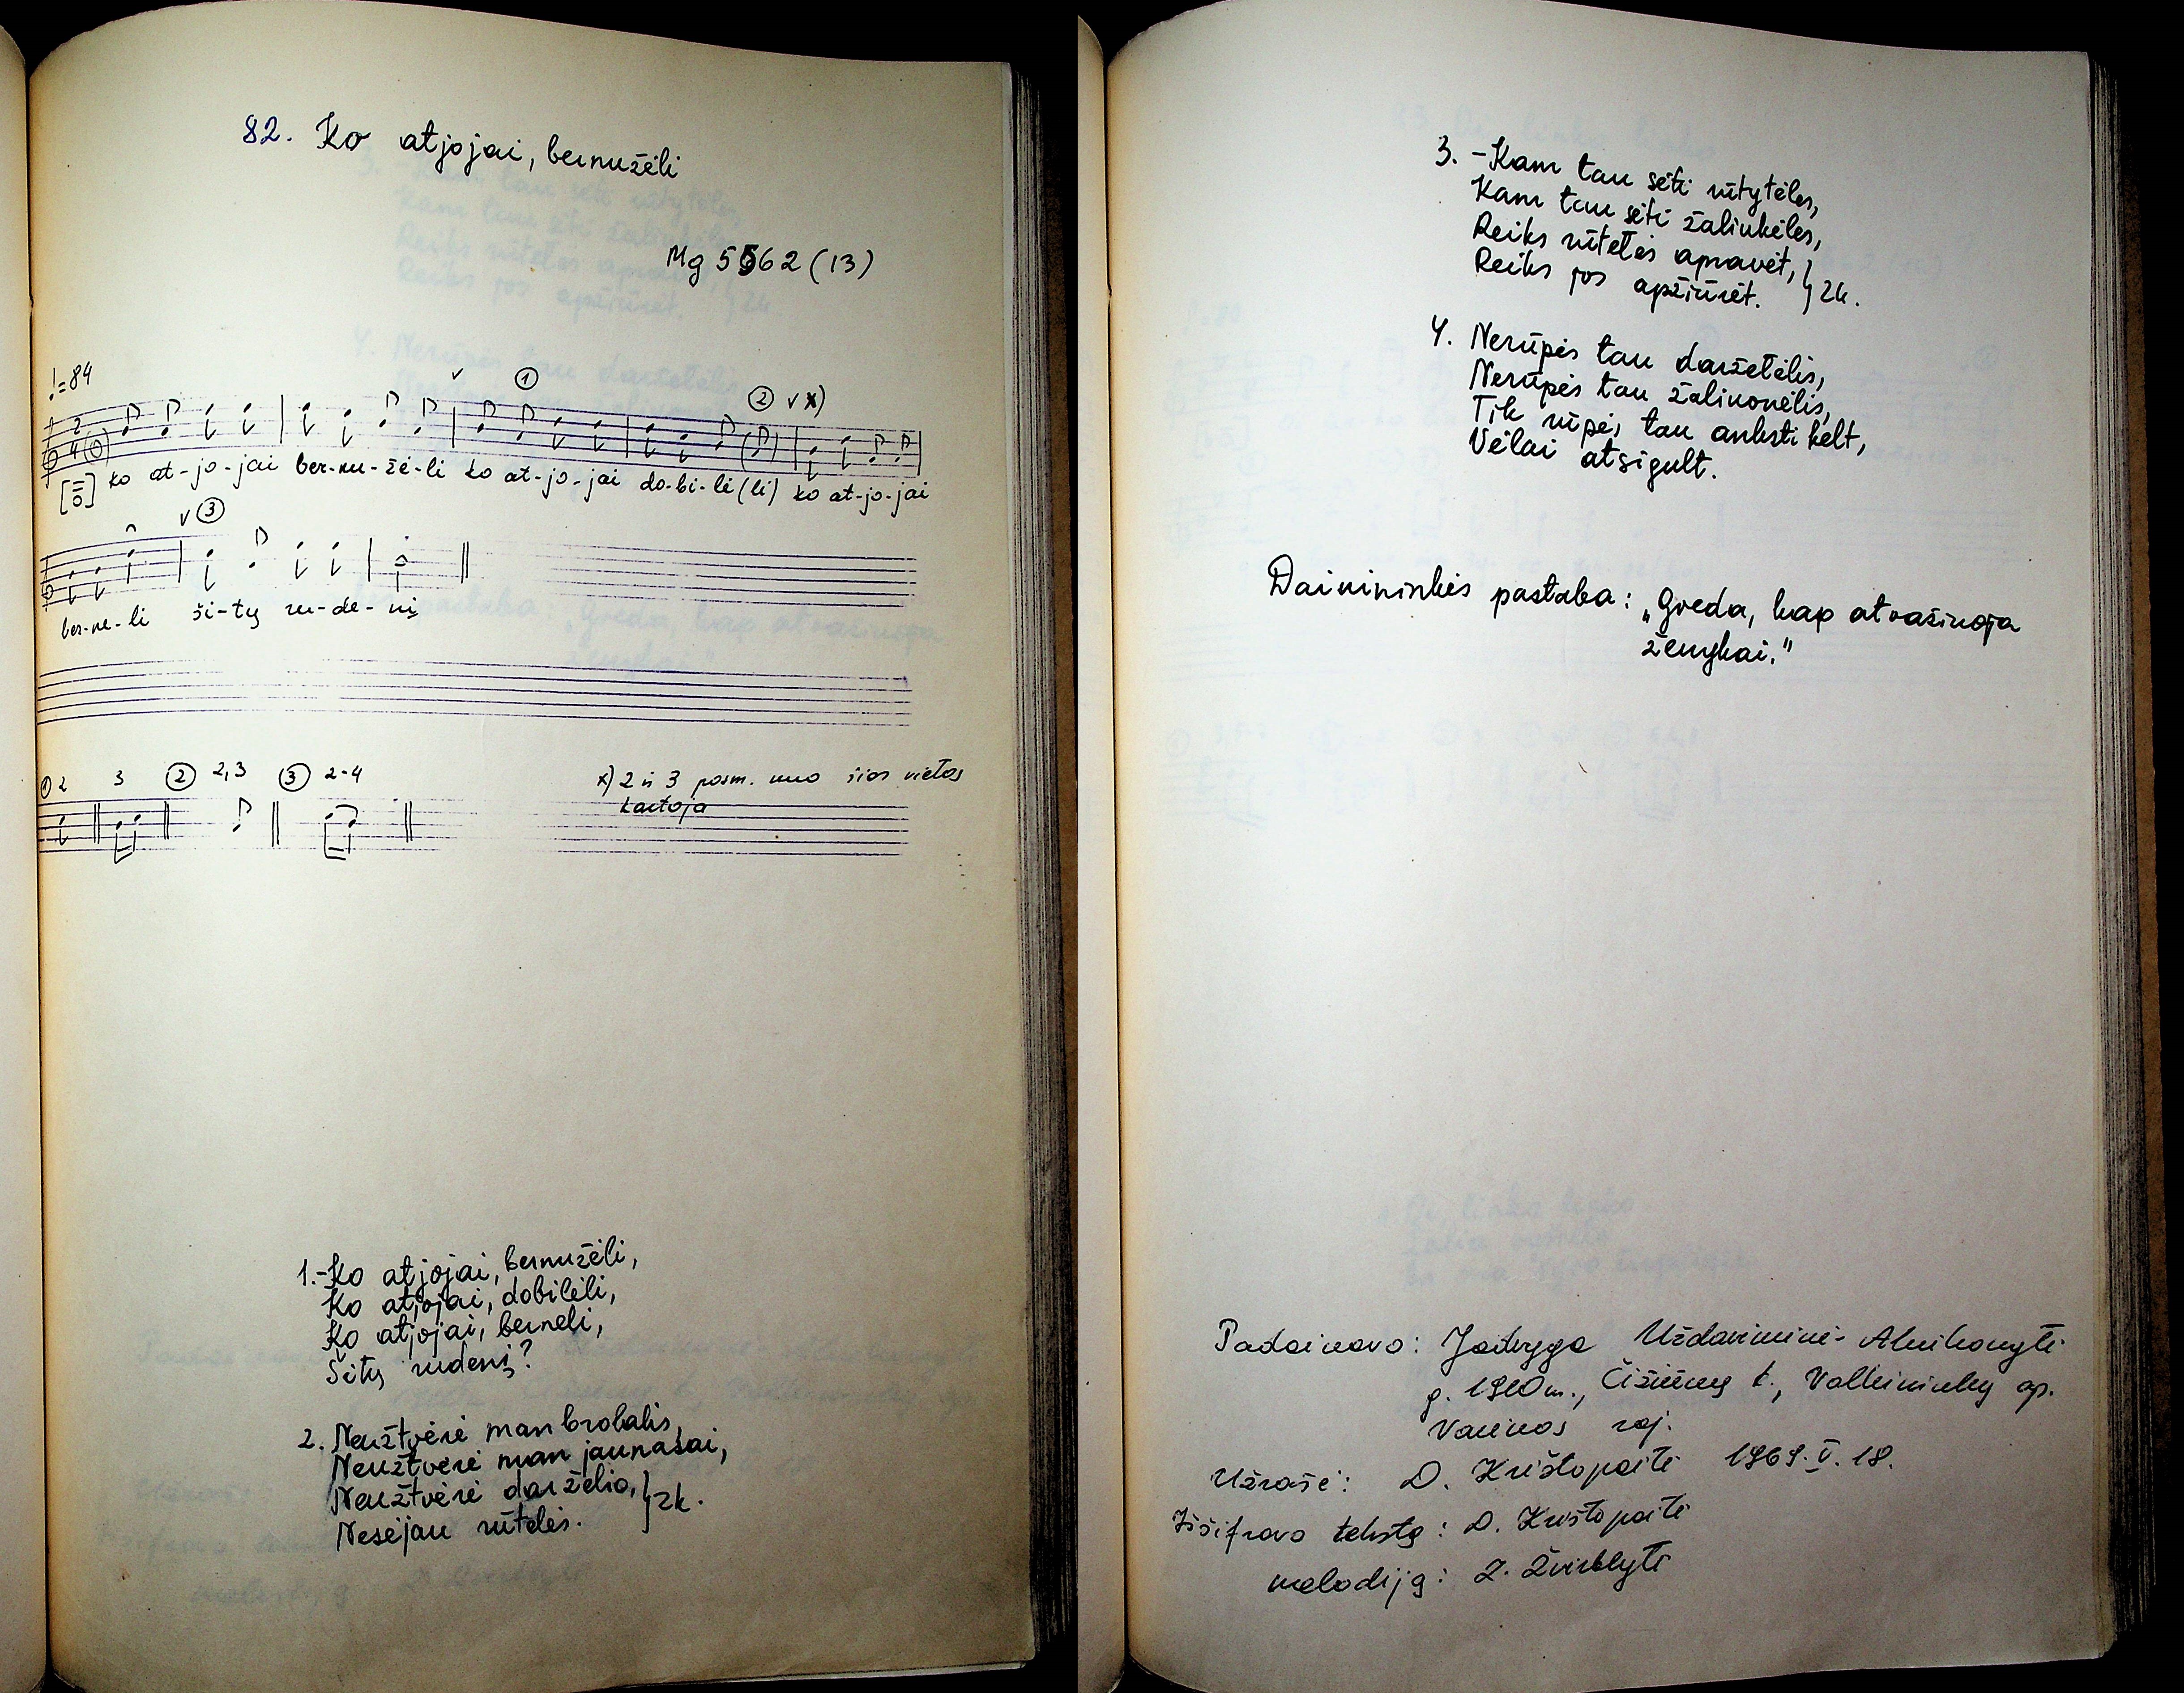 82. Ko atjojai, bernužėli
Mg 5562 (13)
♩=84
ko at-jo-jai ber-nu-žė-li ko at-jo-jai do-bi-li(li) ko at-jo-jai
ber-ne-li ši-tų ru-de-nį
① 2 3 ② 2,3 ③ 2-4
x) 2 ir 3 posm. nuo šios vietos
kartoja
1.-Ko atjojai, bernužėli,
Ko atjojai, dobilėli,
Ko atjojai, berneli,
Šitų rudenį?
2. Neužtvėrė man brolalis,
Neužtvėrė man jaunasai,
Neužtvėrė darželio,
Nesėjau rūtelės. }2k.
3. -Kam tau sėti rūtytėles,
Kam tau sėti žaliukėles,
Reiks rūteles apravėt,
Reiks jos apžiūrėt. }2k.
4. Nerūpės tau darželėlis,
Nerūpės tau žaliuonėlis,
Tik rūpės tau anksti kelt,
Vėlai atsigult.
Dainininkės pastaba: „Gieda, kap atvažinoja
ženykai."
Padainavo: Jadvyga Uždavininė-
g. 1910 m., Čižiūnų k., Valkininkų ap.
Varėnos raj.
Užrašė: D. Krištopaitė 1969.V.18.
Iššifravo tekstą: D. Krištopaitė
melodiją: Z. Žvirblytė